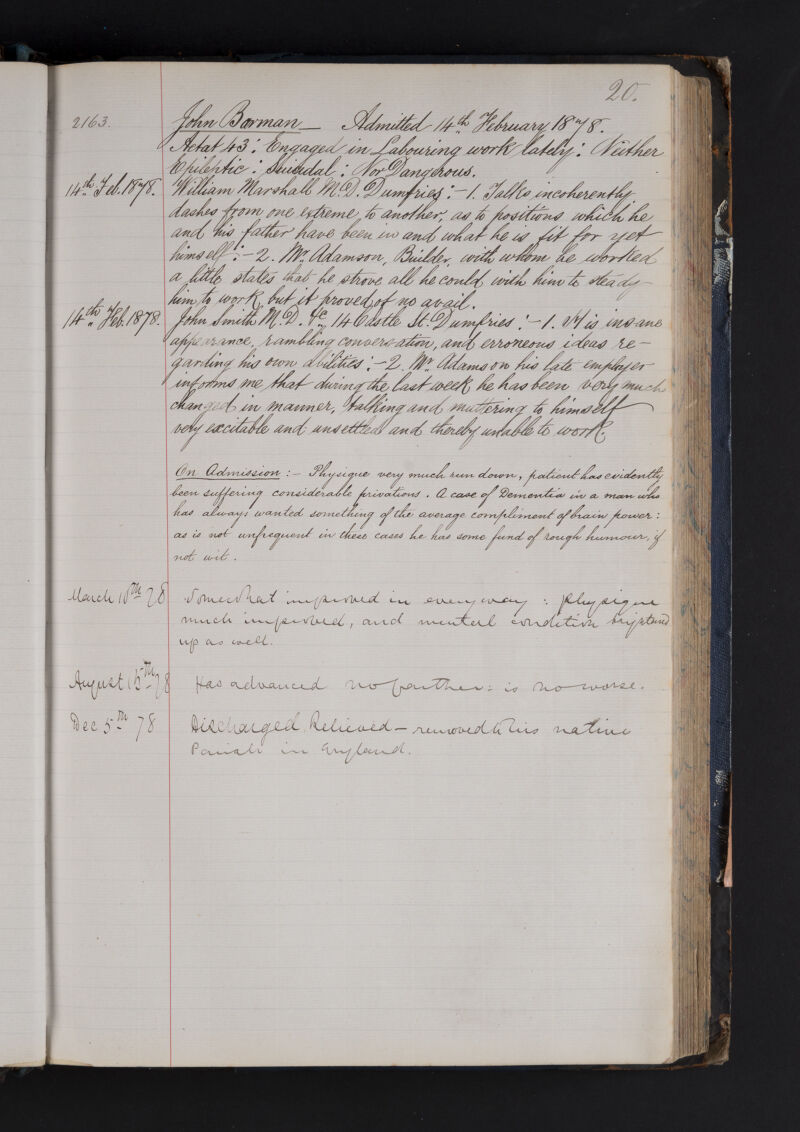 20.
2163. John Borman — Admitted 14th February 1878.
Aetat 43 : Engaged in Labouring work lately : Neither
Epileptic : Suicidal : Nor Dangerous.
14th Feb. 1878. William Marshall M.D. Dumfries :- 1. Talks incoherently
dashes from one extreme to another, as to positions which he
and his father have been in and what he is fit for yet
himself :- 2. Mr. Adamson, Builder, with whom he worked
a little states that he strove all he could with him to steady
him to work, but it proved of no avail.
14th Feb. 1878. John Smith M.D. &c 14 Castle St. Dumfries :- 1. is insane
appearance, rambling conversation, and erroneous ideas re-
garding his own abilities :- 2. Mr. Adamson his late employer
informs me that during the last week he has been very much
changed in manner, talking and muttering to himself
very excitable and unsettled and thereby unable to work.
On Admission :- Physique very much run down, patient has evidently
been suffering considerable privations. A case of Dementia in a man who
has always wanted something of the average compliment of brain power :
as is not unfrequent in these cases he has some fund of rough humour, if
not wit.
March 10th 78 Somewhat improved in every way : physique
much improved, and mental condition brightened
up as well.
August 15th 78 Has advanced no farther : is no worse.
Dec 5th 78 Discharged Relieved — removed to his native
Parish in England.